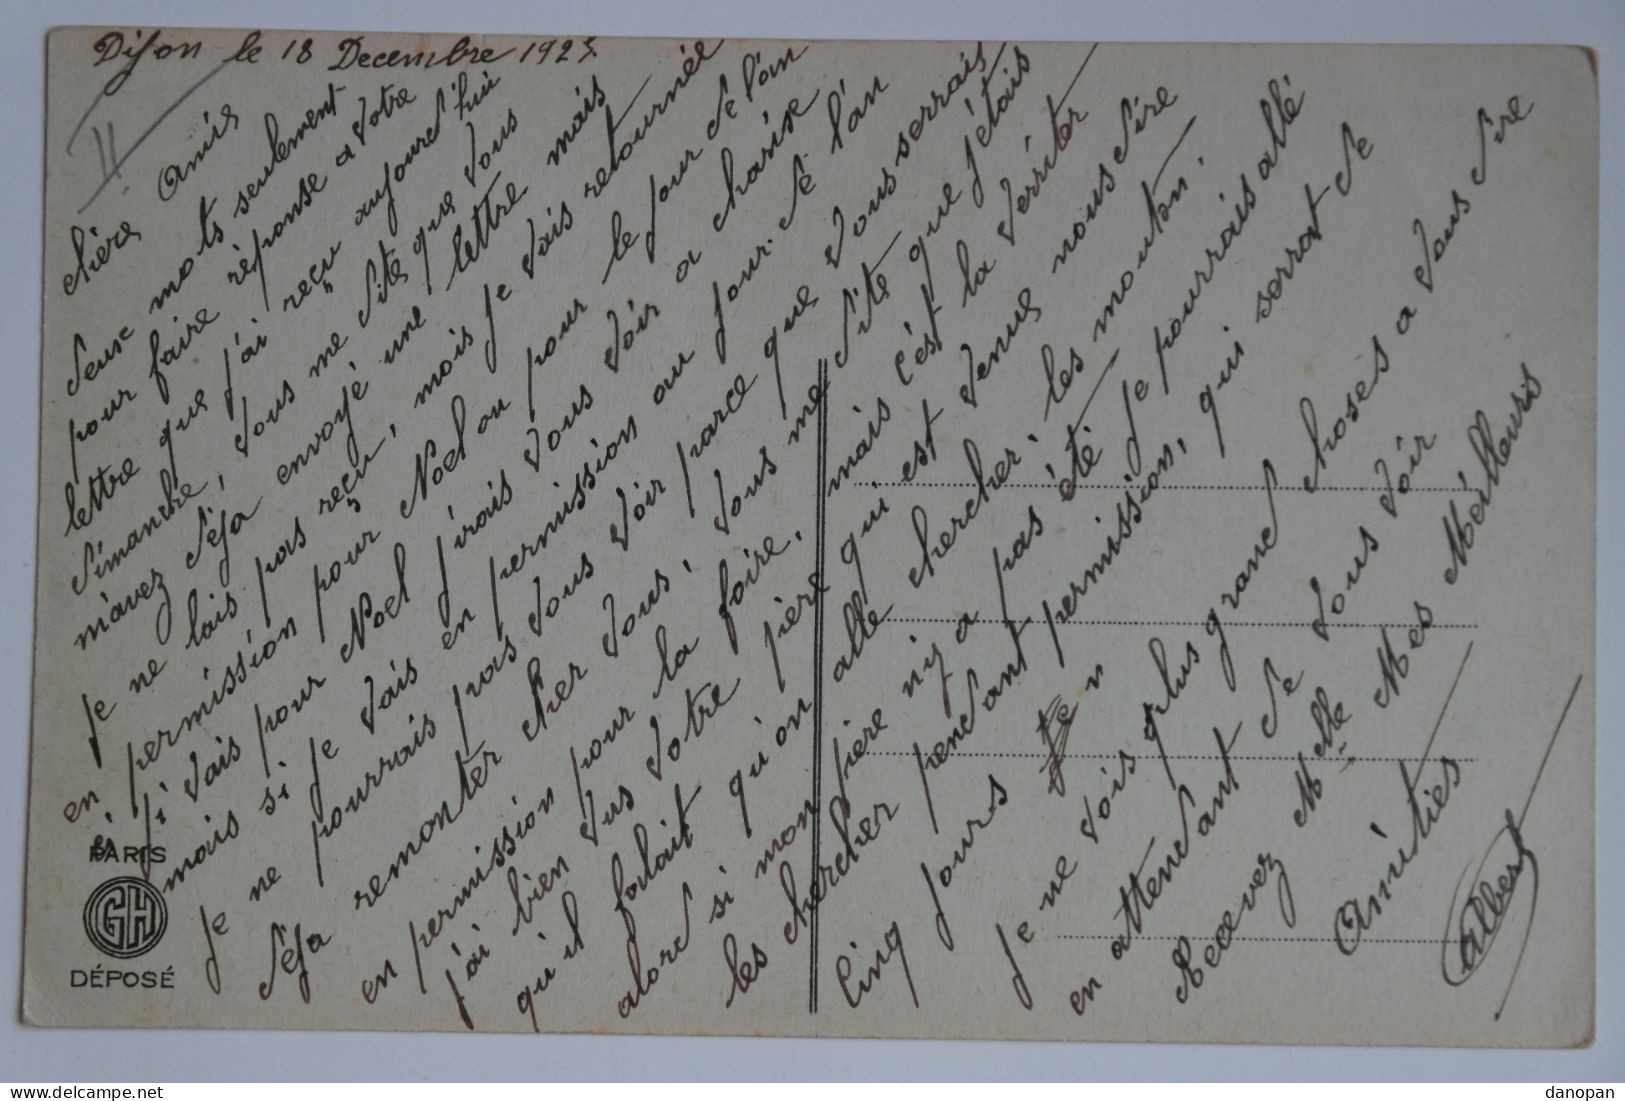 Dijon le 18 Decembre 192
chière Amie
deux mots seulement
pour faire réponse a votre
lettre que j'ai reçu aujourd'hui
dimanche, vous me dites que vous
m'avez déja envoyé une lettre mais
je ne lais pas reçu, mois je vais retournée
en permission pour Noel ou pour le jour de l'an
si j'i vais pour Noel j'irais vous voir a
mais si je vais en permission au jour de l'an
je ne pourrais pas vous voir parce que vous serrais
déja remonter cher vous, vous me dite que j'étais
en permission pour la foire, mais c'est la verriter
j'ai bien vus votre pière qui est venue nous dire
qu'il falait qu'on alle chercher les mouton.
alord si mon pière n'y a pas été je pourrais allé
les chercher pendant permission, qui serrat de
cinq jours
je ne vois plus grand choses a vous dire
en attendant de vous voir
Recevez Melle Mes Meilleurs
Amitiés
Albert
PARIS
GH
DÉPOSÉ
danopan